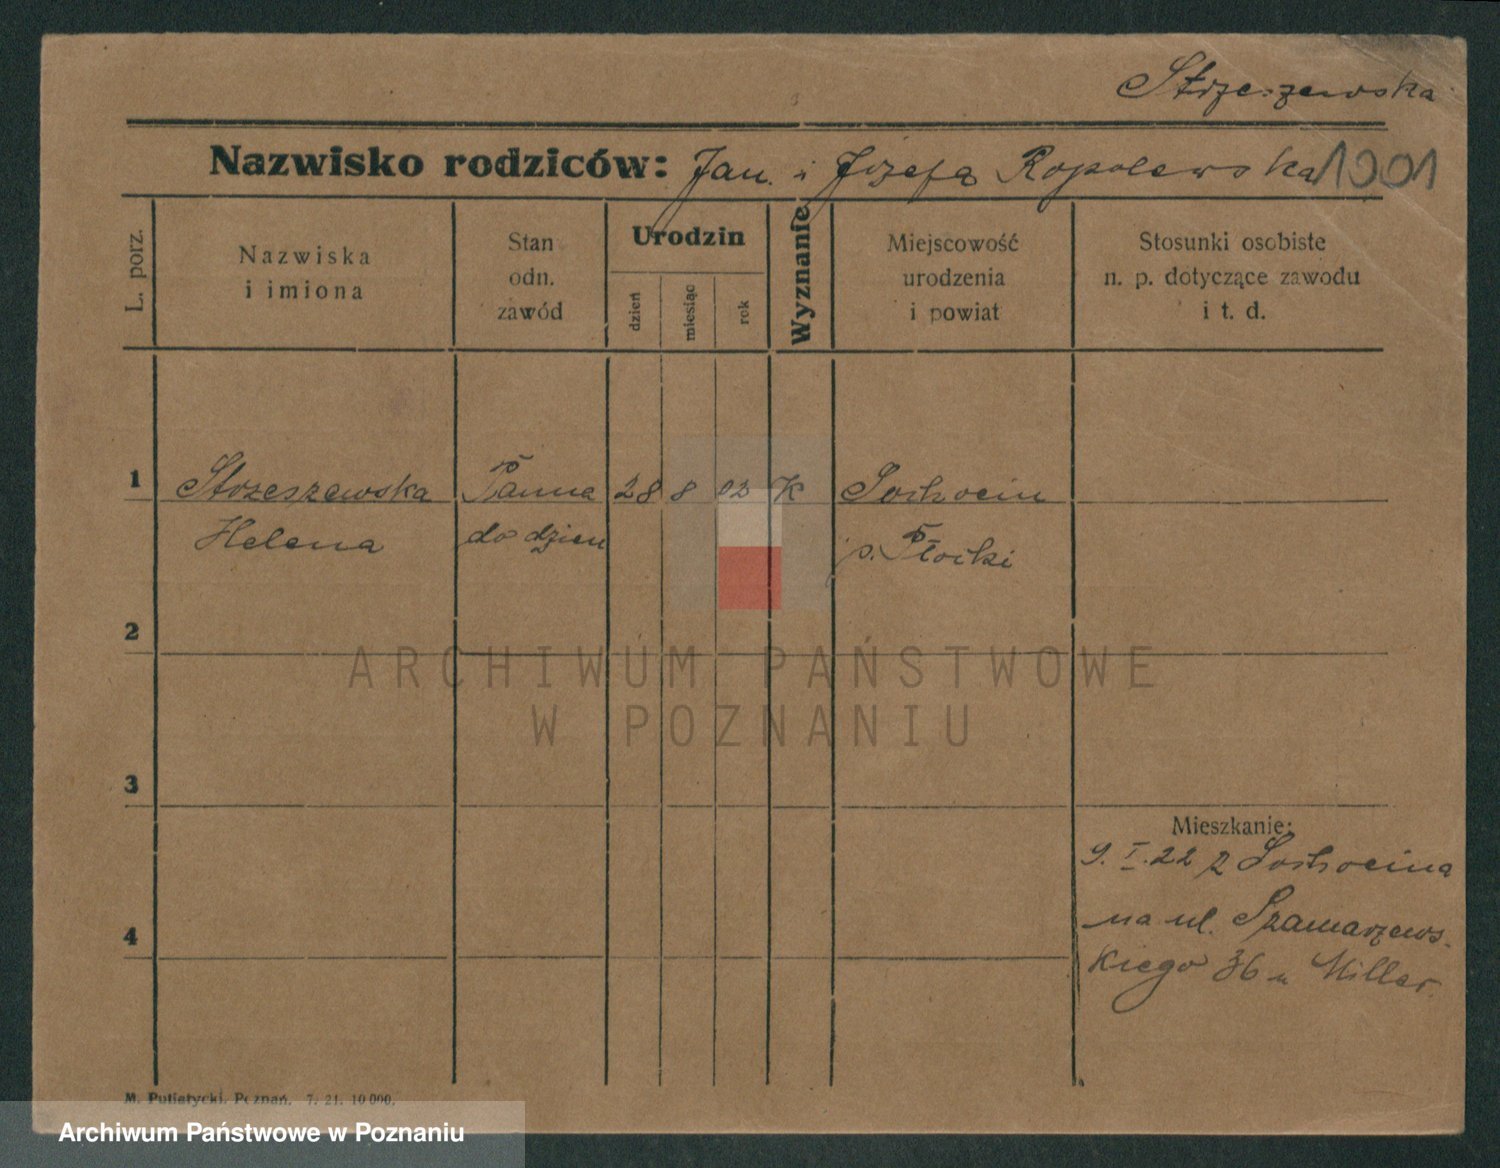 Strzeszewska
Nazwisko rodziców: Jan i Józefa Ropolewska 1901
L. porz.
Nazwiska
i imiona
Stan
odn.
zawód
Urodzin
dzień
miesiąc
rok
Wyznanie
Miejscowość
urodzenia
i powiat
Stosunki osobiste
n. p. dotyczące zawodu
i t. d.
1 Strzeszewska Panna 28 8 02 K Sochocin
Helena do dzieci p. Płocki
2
3
Mieszkanie:
9. I. 22 z Sochocina
4 na ul. Szamarzews-
kiego 36 u Miller.
M. Putiatycki, Poznań. 7. 21. 10 000.
ARCHIWUM PAŃSTWOWE
W POZNANIU
Archiwum Państwowe w Poznaniu